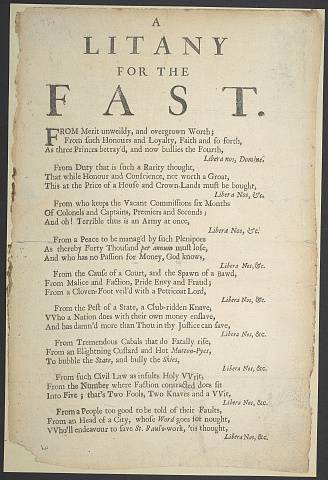 A
LITANY
FOR THE
FAST.
FROM Merit unweildy, and overgrown Worth;
From such Honours and Loyalty, Faith and so forth,
As three Princes betray'd, and now bullies the Fourth,
Libera nos, Domine.
From Duty that is such a Rarity thought,
That while Honour and Conscience, not worth a Groat,
This at the Price of a House and Crown-Lands must be bought,
Libera Nos, &c.
From who keeps the Vacant Commissions six Months
Of Colonels and Captains, Premiers and Seconds;
And oh! Terrible thus is an Army at once,
Libera Nos, &c.
From a Peace to be manag'd by such Plenipoes
As thereby Forty Thousand per annum must lose,
And who has no Passion for Money, God knows,
Libera Nos, &c.
From the Cause of a Court, and the Spawn of a Bawd,
From Malice and Faction, Pride Envy and Fraud;
From a Cloven-Foot veil'd with a Petticoat Lord,
Libera Nos, &c.
From the Pest of a State, a Club-ridden Knave,
VVho a Nation does with their own money enslave,
And has damn'd more than Thou in thy Justice can save,
Libera Nos, &c.
From Tremendous Cabals that do Fatally rise,
From an Elightning Custard and Hot Mutton-Pyes,
To bubble the State, and bully the Skies,
Libera Nos, &c.
From such Civil Law as insults Holy VVrit,
From the Number where Faction contracted does sit
Into Five; that's Two Fools, Two Knaves and a VVit,
Libera Nos, &c.
From a People too good to be told of their Faults,
From an Head of a City, whose Word goes for nought,
VVho'll endeavour to save St. Paul's-work, 'tis thought,
Libera Nos, &c.